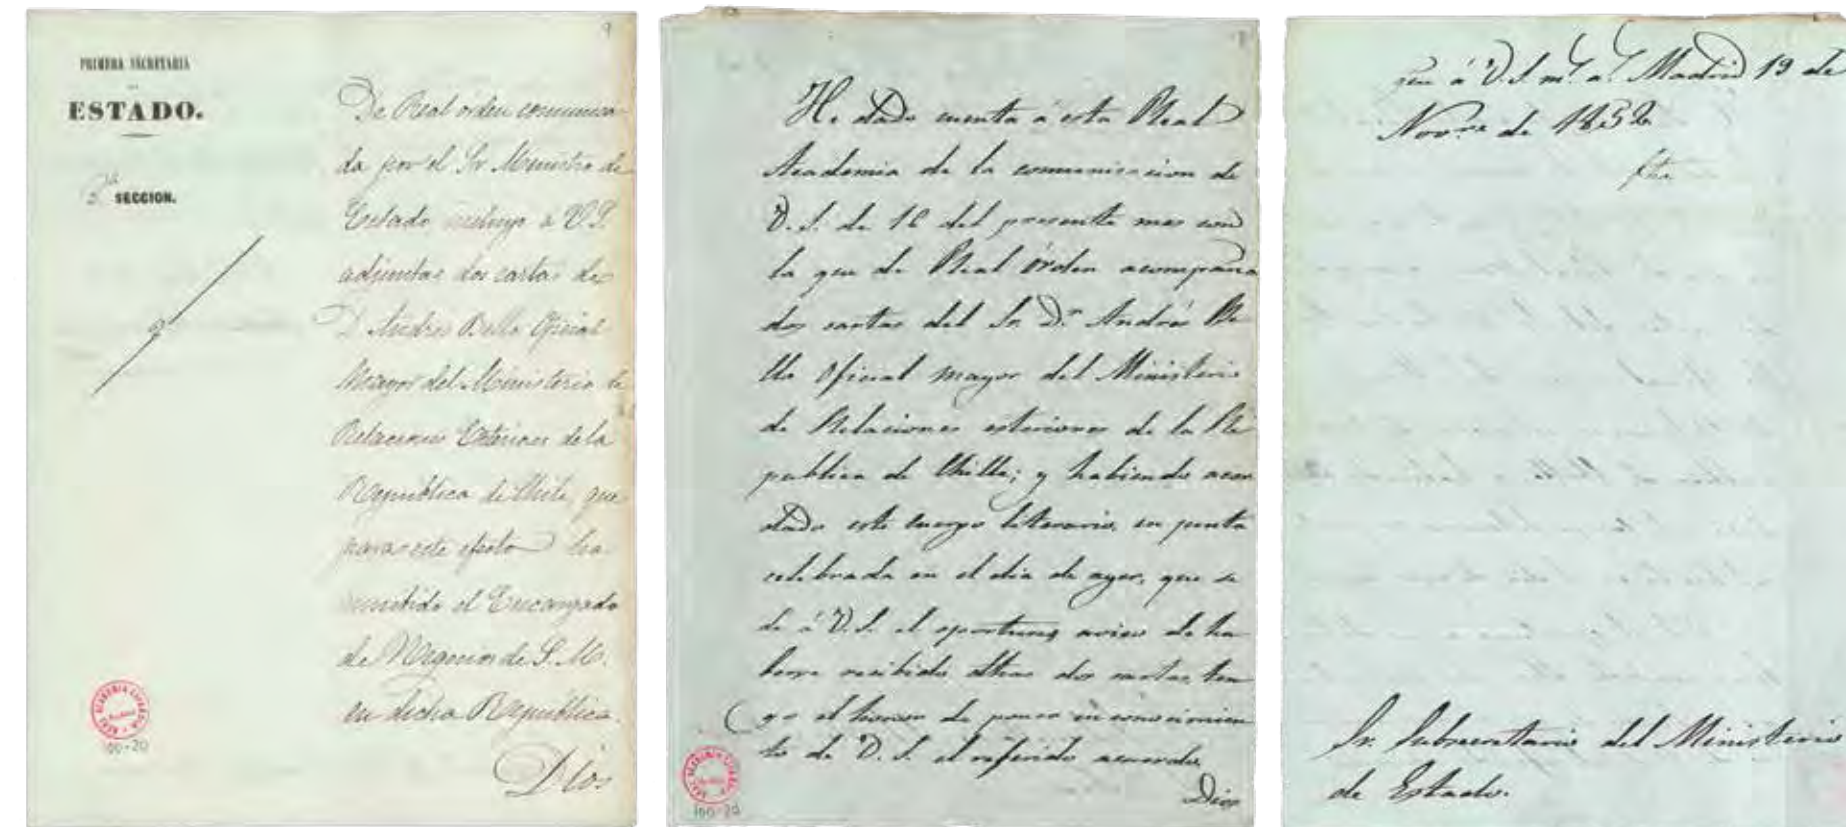 PRIMERA SECRETARIA
ESTADO.
SECCION.
9
De Real órden comunica
da por el Sr Ministro de
Estado incluyo a V.S.
adjuntas dos cartas de
D. Andres Bello Oficial
Mayor del Ministerio de
Relaciones Exteriores de la
Republica de Chile, que
para este efecto ha
remitido el Encargado
de Negocios de S. M.
en dicha Republica.
Dios
REAL ACADEMIA ESPAÑOLA
100-20
He dado cuenta á esta Real
Academia de la comunicacion de
V. S. de 16 del presente mes con
la que de Real órden acompaña
dos cartas del Sr. Dn. Andrés Be
llo Oficial mayor del Ministerio
de Relaciones esteriores de la Re
publica de Chile; y habiendo acor
dado este cuerpo literario, en junta
celebrada en el dia de ayer, que se
dé á V. S. el oportuno aviso de ha
berse recibido dhas dos cartas, ten
go el honor de poner en conocimien
to de V. S. el referido acuerdo.
Dios
REAL ACADEMIA ESPAÑOLA
100-20
gue á V. S. ms. as. Madrid 19 de
Novre. de 1852
fho
Sr. Subsecretario del Ministerio
de Estado.